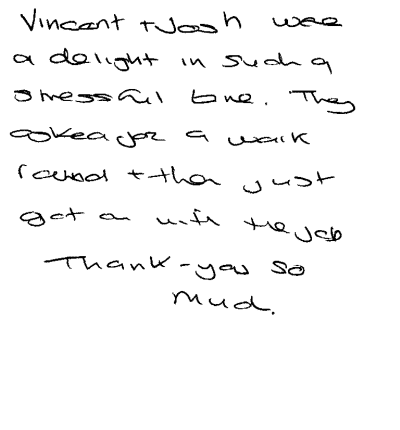 Vincent + Josh were
a delight in such a
stressful time. They
asked for a walk
round + then just
got on with the job
Thank-you so
much.